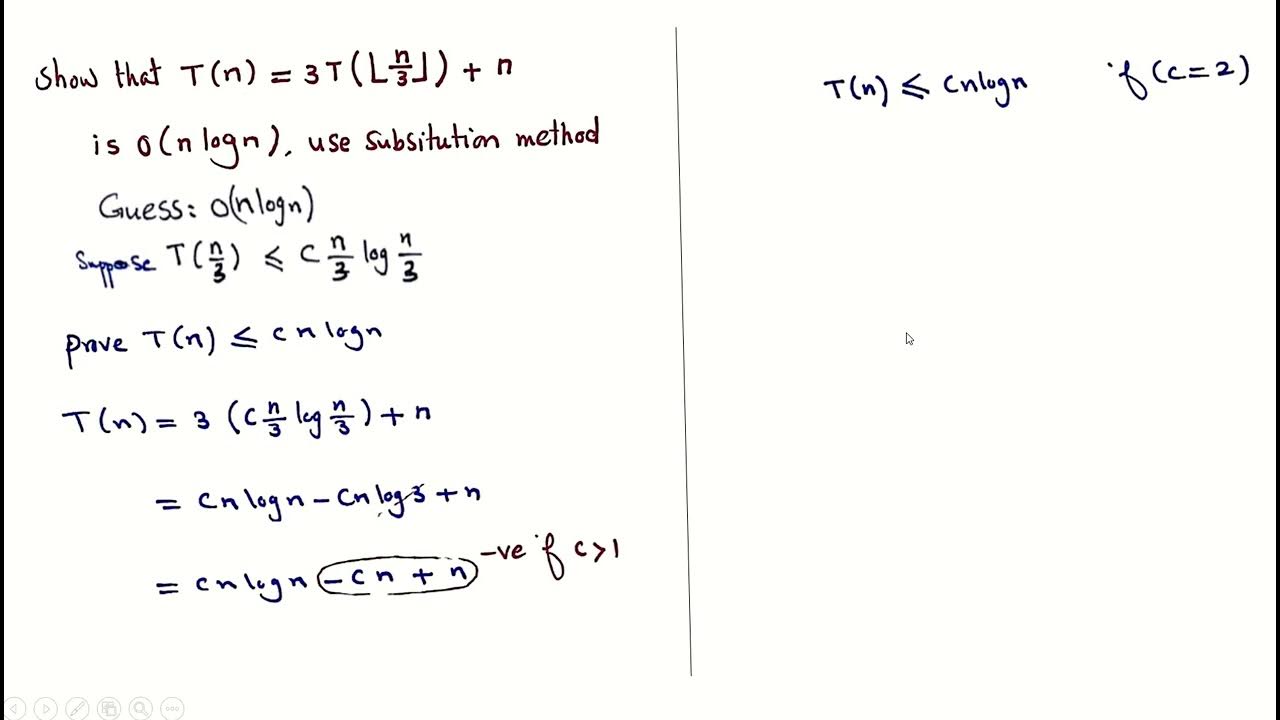 show that T(n) = 3T(⌊n/3⌋) + n
is O(n logn), use subsitution method
Guess: O(nlogn)
suppose T(n/3) ≤ c n/3 log n/3
prove T(n) ≤ c n logn
T(n) = 3 (c n/3 log n/3) + n
= cn logn - cn log3 + n
= cn logn - cn + n -ve if c>1
T(n) ≤ cnlogn if (c=2)